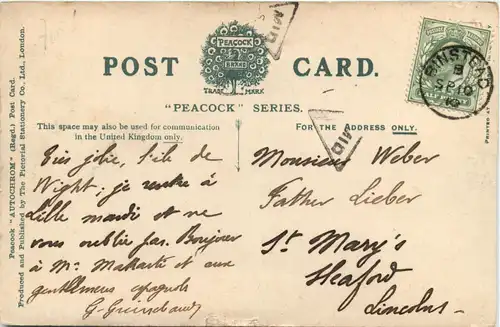 POST CARD.
PEACOCK
BRAND
TRADE MARK
"PEACOCK" SERIES.
This space may also be used for communication
in the United Kingdom only.
FOR THE ADDRESS ONLY.
Très jolie, l'île de
Wight; je rentre à
Lille mardi et ne
vous oublie pas. Bonjour
à Mr. et aux
gentlemens espagnols
G.
Monsieur Weber
Father Lieber
St Mary's
Sleaford
Lincolns-
BINSTEAD
SP 10
Peacock "AUTOCHROM" (Regd.) Post Card.
Produced and Published by The Pictorial Stationery Co., Ltd., London.
Printed at